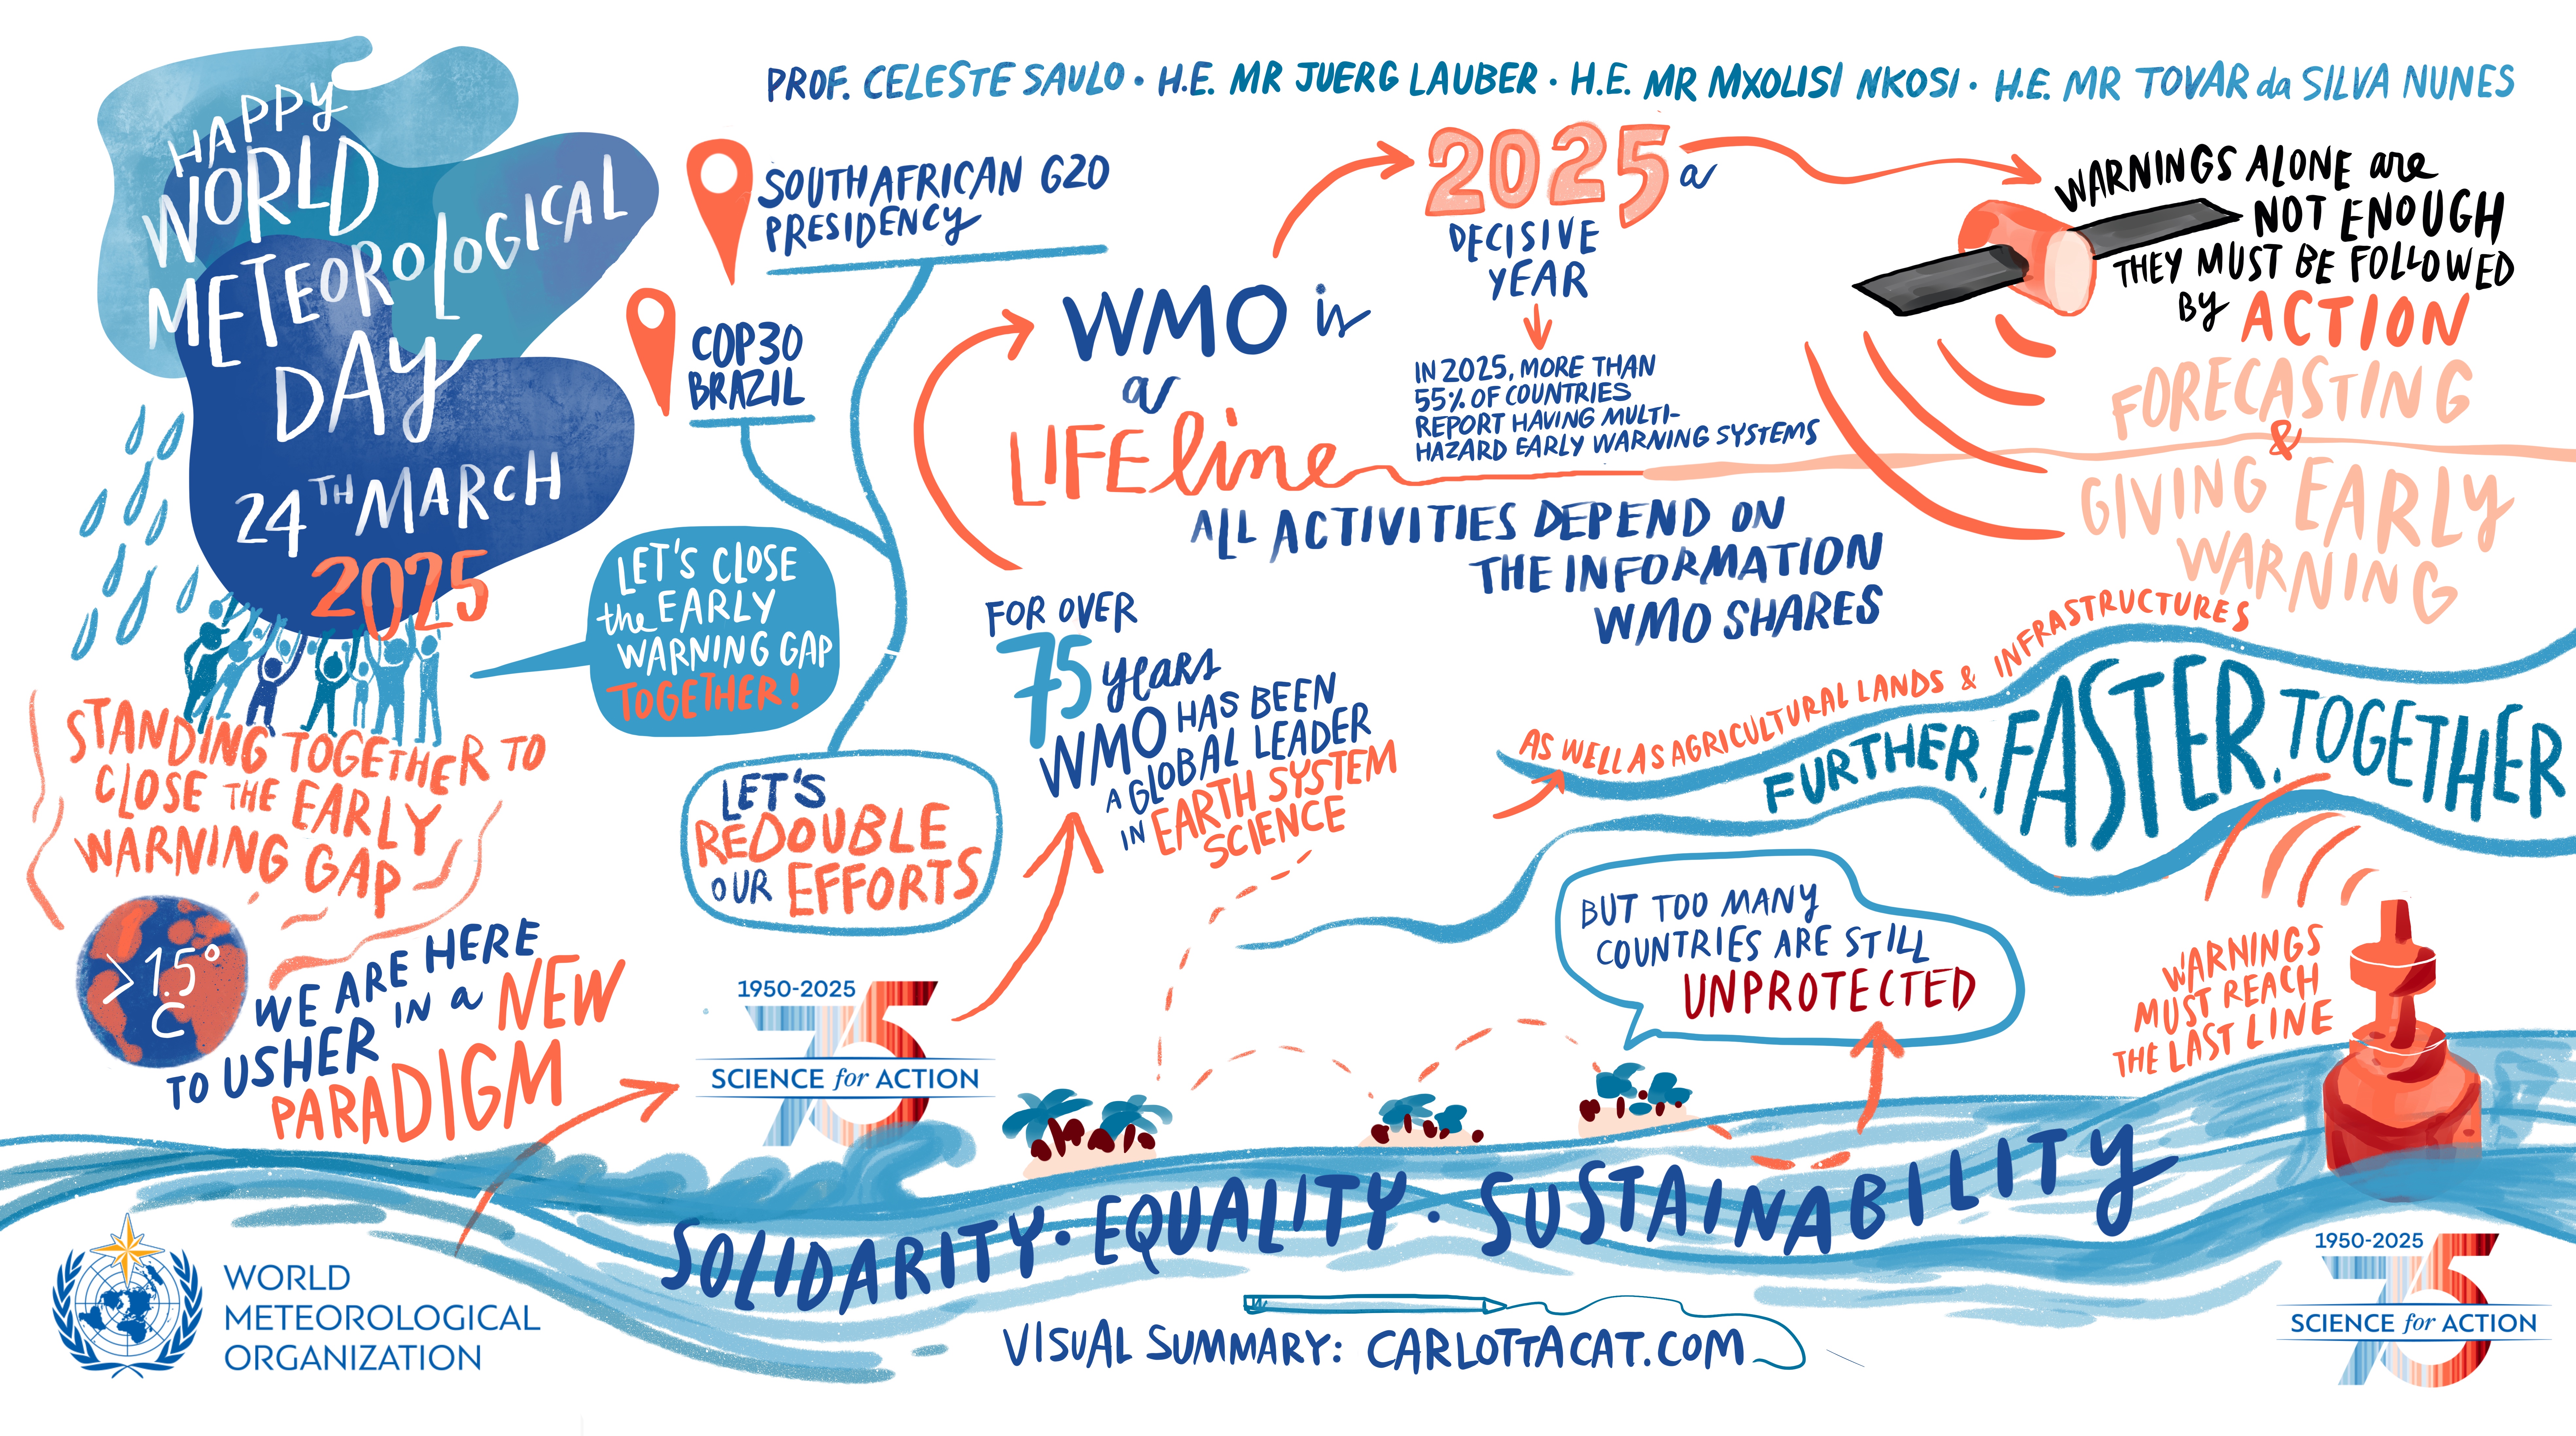 PROF. CELESTE SAULO · H.E. MR JUERG LAUBER · H.E. MR MXOLISI NKOSI · H.E. MR TOVAR da SILVA NUNES
HAPPY
WORLD
METEOROLOGICAL
DAY
24TH MARCH
2025
STANDING TOGETHER TO
CLOSE THE EARLY
WARNING GAP
>1.5°
C
WE ARE HERE
TO USHER IN a NEW
PARADIGM
SOUTH AFRICAN G20
PRESIDENCY
COP30
BRAZIL
LET'S CLOSE
the EARLY
WARNING GAP
TOGETHER!
LET'S
REDOUBLE
OUR EFFORTS
1950-2025
75
SCIENCE for ACTION
FOR OVER
75 years
WMO HAS BEEN
A GLOBAL LEADER
IN EARTH SYSTEM
SCIENCE
WMO is
a
LIFEline
2025 a
DECISIVE
YEAR
IN 2025, MORE THAN
55% OF COUNTRIES
REPORT HAVING MULTI-
HAZARD EARLY WARNING SYSTEMS
ALL ACTIVITIES DEPEND ON
THE INFORMATION
WMO SHARES
WARNINGS ALONE are
NOT ENOUGH
THEY MUST BE FOLLOWED
BY ACTION
FORECASTING
&
GIVING EARLY
WARNING
AS WELL AS AGRICULTURAL LANDS & INFRASTRUCTURES
FURTHER, FASTER, TOGETHER
BUT TOO MANY
COUNTRIES ARE STILL
UNPROTECTED
WARNINGS
MUST REACH
THE LAST LINE
SOLIDARITY · EQUALITY · SUSTAINABILITY
WORLD
METEOROLOGICAL
ORGANIZATION
VISUAL SUMMARY: CARLOTTACAT.COM
1950-2025
75
SCIENCE for ACTION